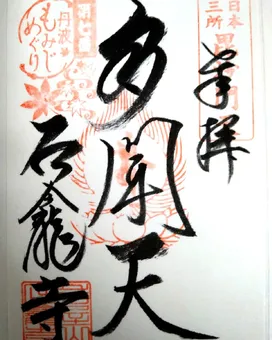 奉拝
日本
三所
毘
多聞天
丹波
もみじ
めぐり
石龕寺